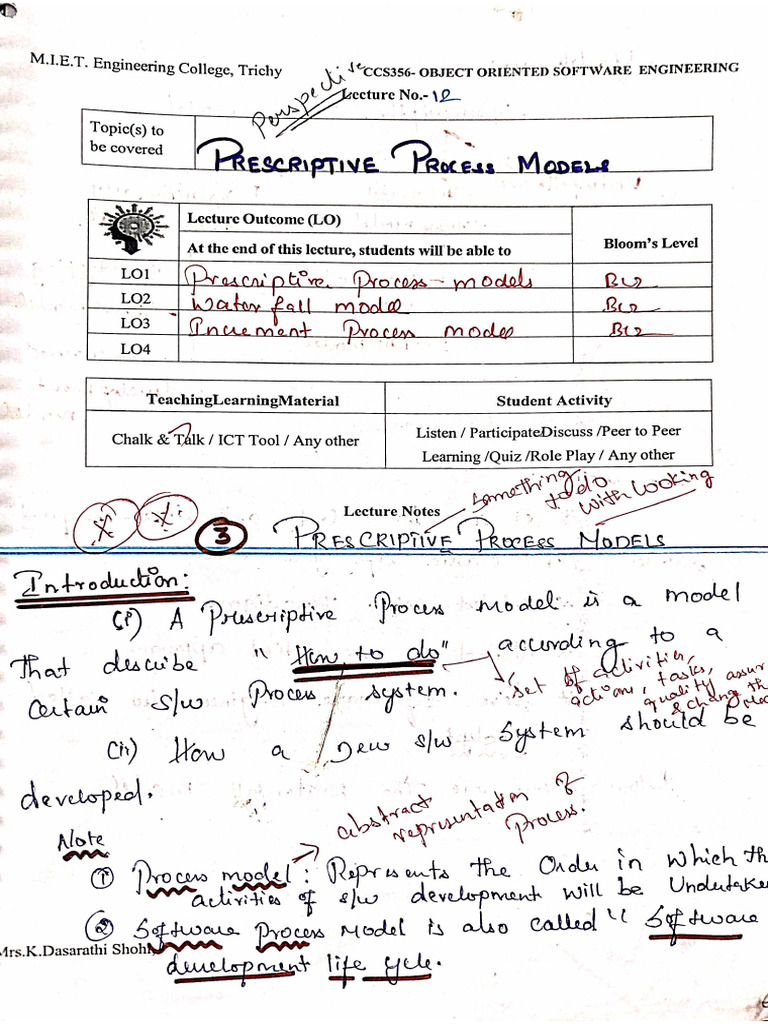 M.I.E.T. Engineering College, Trichy
CCS356- OBJECT ORIENTED SOFTWARE ENGINEERING
Perspective
Lecture No.- 12
Topic(s) to be covered
PRESCRIPTIVE PROCESS MODELS
Lecture Outcome (LO)
At the end of this lecture, students will be able to
Bloom's Level
LO1 Prescriptive Process-models
LO2 Water fall model
LO3 Increment Process model
LO4
TeachingLearningMaterial
Student Activity
Chalk & Talk / ICT Tool / Any other
Listen / ParticipateDiscuss /Peer to Peer
Learning /Quiz /Role Play / Any other
something
to do
with looking
Lecture Notes
3 PRESCRIPTIVE PROCESS MODELS
Introduction:
(i) A Prescriptive Process model is a model
That describe "How to do" according to a
certain s/w Process system.
set of activities,
action, tasks,
quality assur
& change th
(ii) How a new s/w system should be
developed.
abstract
representation of
Process.
Note
① Process model: Represents the Order in which th
activities of s/w development will be Undertake
② Software Process Model is also called "Software
Mrs.K.Dasarathi Shohi
development life cycle.